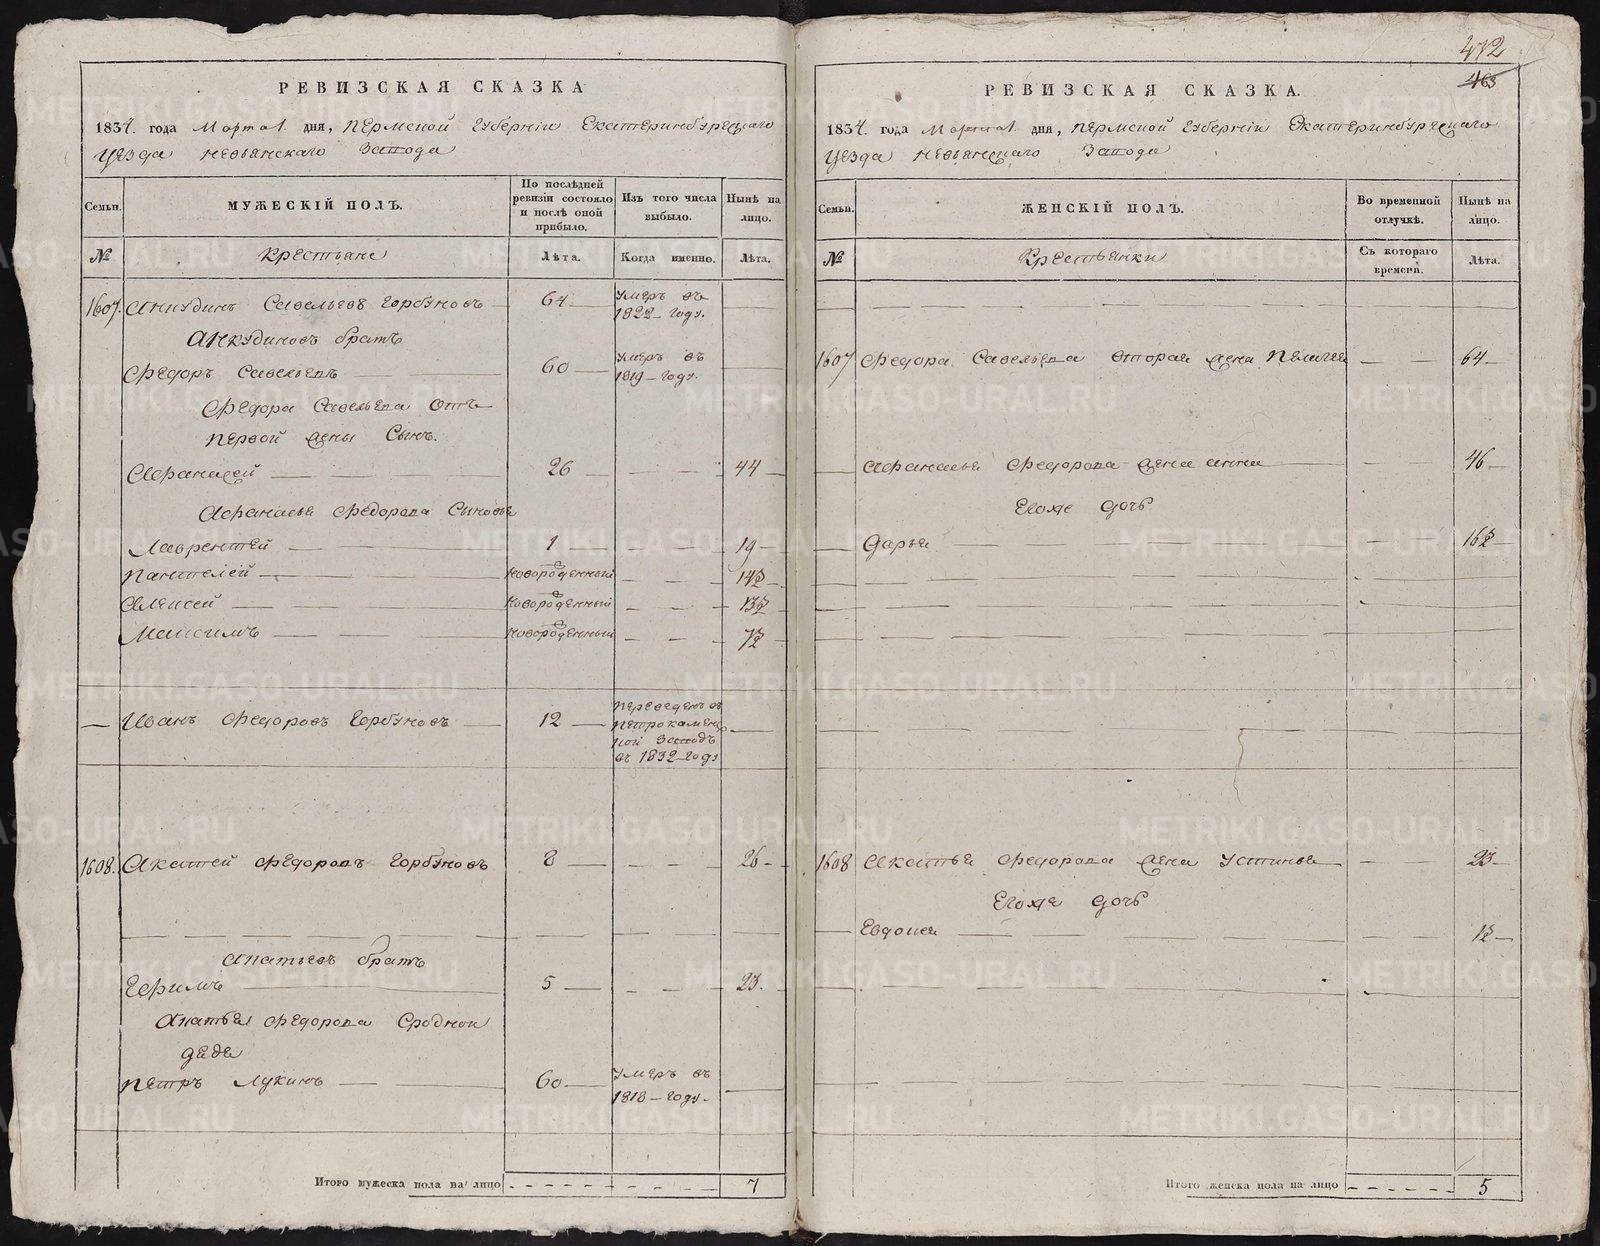 РЕВИЗСКАЯ СКАЗКА
1834. года Марта 1. дня, Пермской Губерніи Екатеринбурскаго
Уезда Невьянскаго Завода
Семьи.
МУЖЕСКІЙ ПОЛЪ.
По послѣдней ревизіи состояло и послѣ оной прибыло.
Изъ того числа выбыло.
Нынѣ на лицо.
№
Крестьяне
Лѣта.
Когда именно.
Лѣта.
1607. Анкудинъ Савельевъ Горбуновъ 64 Умеръ въ 1822 году.
Анкудиновъ братъ
Федоръ Савельевъ 60 Умеръ въ 1819 году.
Федора Савельева отъ
первой жены Сынъ.
Афанасей 26 44
Афанасья Федорова Сыновья
Лаврентей 1 19
Пантелей новорожденный 14½
Алексей новорожденный 13½
Максимъ новорожденный 7½
Иванъ Федоровъ Горбуновъ 12 Переведенъ въ Петрокаменской Заводъ въ 1832 году
1608. Акатей Федоровъ Горбуновъ 8 26
Акатьевъ братъ
Ефимъ 5 23.
Акатья Федорова Сродной
дядя
Петръ Лукинъ 60 Умеръ въ 1818 году.
Итого мужеска пола на лицо 7
472
463
РЕВИЗСКАЯ СКАЗКА.
1834. года Марта 1. дня, Пермской Губерніи Екатеринбурскаго
Уезда Невьянскаго Завода
Семьи.
ЖЕНСКІЙ ПОЛЪ.
Во временной отлучкѣ.
Нынѣ на лицо.
№
Крестьянки
Съ котораго времени.
Лѣта.
1607 Федора Савельева вторая жена Пелагея 64
Афанасья Федорова жена Анна 46
Егоже дочь
Дарья 16½
1608 Акатья Федорова жена Устинья 23
Егоже дочь
Евдокея 1½
Итого женска пола на лицо 5
METRIKI.GASO-URAL.RU